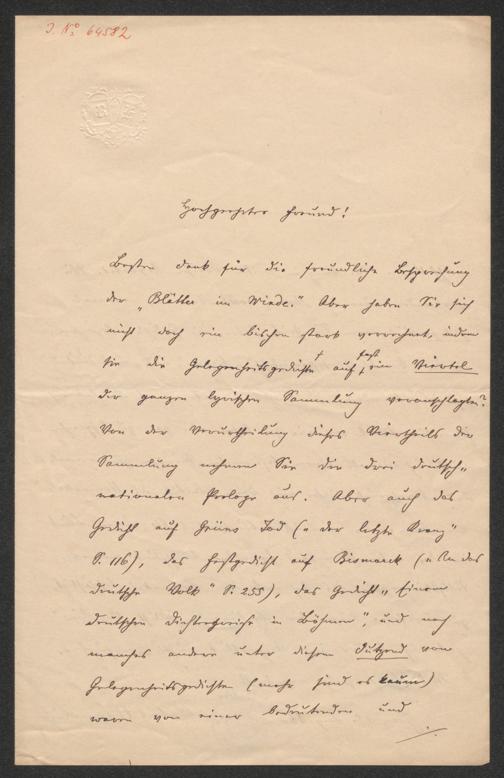 J. No 64582
Hochgeehrter Freund!
Besten Dank für die freundliche Besprechung
der "Blätter im Winde." Aber haben Sie sich
nicht doch ein bischen stark verrechnet, indem
sie die Gelegenheitsgedichte auf fast ein Viertel
der ganzen lyrischen Sammlung veranschlagten?
Von der Verurtheilung dieses Viertheils der
Sammlung nehmen Sie die drei deutsch-
nationalen Prologe aus. Aber auch das
Gedicht auf Grüns Tod („der letzte Kranz"
S. 116), das Festgedicht auf Bismarck („An das
deutsche Volk" S. 255), das Gedicht „Einem
deutschen Dichtergreise in Böhmen", und noch
manches andere unter diesem Dutzend von
Gelegenheitsgedichten (mehr sind es kaum)
waren von einer bedeutenden und